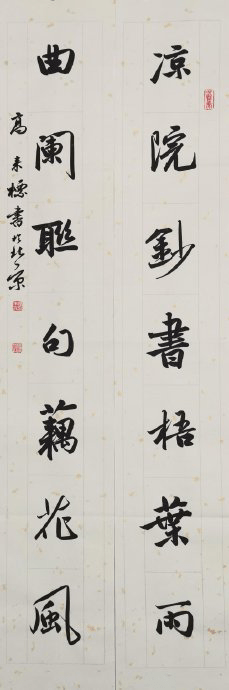 凉院鈔書梧葉雨
曲闌聯句藕花風
高来標書於北京